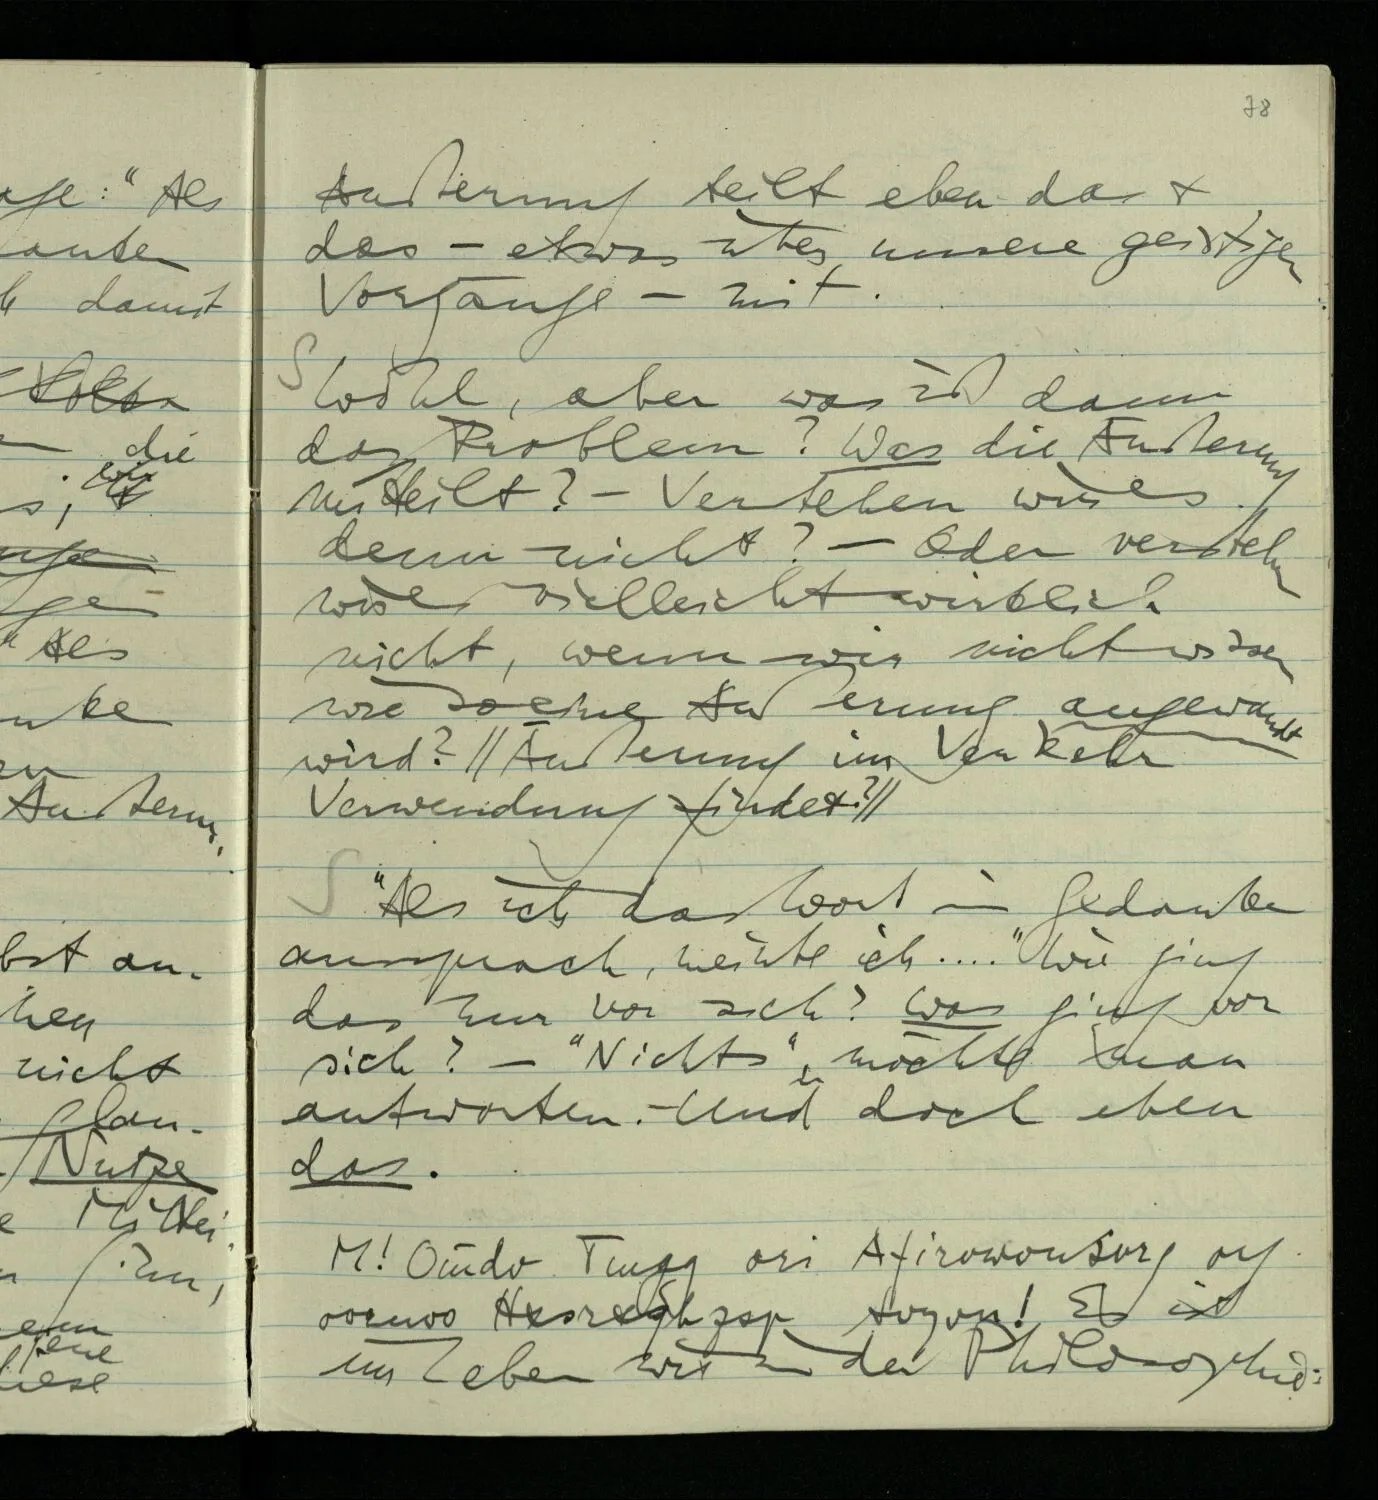 age: " Als
danken
damit
die
wir
s,
ge
" Als
nke
en
Äußerung,
bst an-
hen
nicht
glau-
Nutze
e Mittei-
ihm,
jene
diese
78
Äußerung teilt eben das +
das – etwas über unsere geistigen
Vorgänge – mit.
S Wohl, aber was ist dann
das Problem? Was die Äußerung
mitteilt? – Verstehen wir es
denn nicht? – Oder verstehn
wir es vielleicht wirklich
nicht, wenn wir nicht wissen
wie so eine Äußerung angewandt
wird? // Äußerung im Verkehr
Verwendung findet? //
S "Als ich das Wort in Gedanken
aussprach, meinte ich ...." Wie ging
das nur vor sich? Was ging vor
sich? – "Nichts", möchte man
antworten. – Und doch eben
das.
M! Oüdv ori
soyon! Es ist
im Leben wie in der Philosophie: